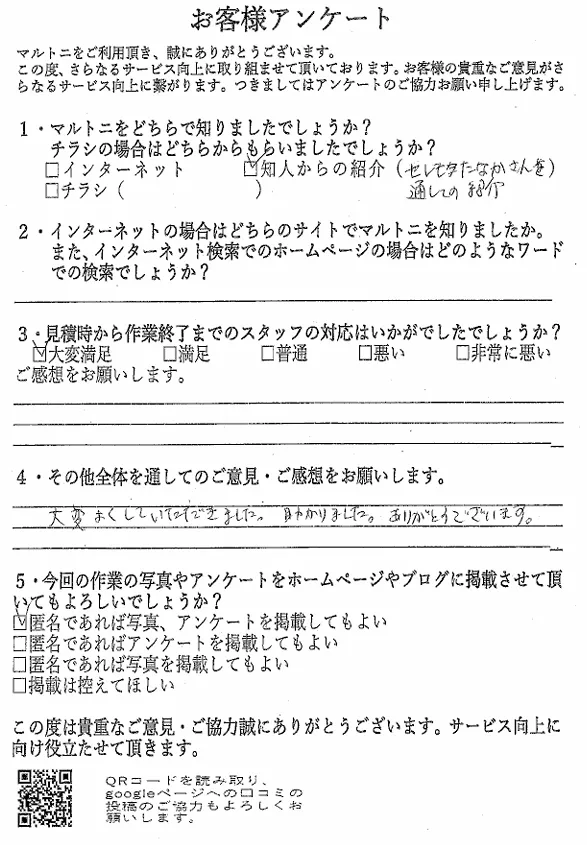 お客様アンケート
マルトニをご利用頂き、誠にありがとうございます。
この度、さらなるサービス向上に取り組ませて頂いております。お客様の貴重なご意見がさ
らなるサービス向上に繋がります。つきましてはアンケートのご協力お願い申し上げます。
1・マルトニをどちらで知りましたでしょうか？
チラシの場合はどちらからもらいましたでしょうか？
□インターネット ☑知人からの紹介（セレモたなかさんを）
□チラシ（ ） 通しての紹介
2・インターネットの場合はどちらのサイトでマルトニを知りましたか。
また、インターネット検索でのホームページの場合はどのようなワード
での検索でしょうか？
3・見積時から作業終了までのスタッフの対応はいかがでしたでしょうか？
☑大変満足 □満足 □普通 □悪い □非常に悪い
ご感想をお願いします。
4・その他全体を通してのご意見・ご感想をお願いします。
大変よくしていただきました。助かりました。ありがとうございます。
5・今回の作業の写真やアンケートをホームページやブログに掲載させて頂
いてもよろしいでしょうか？
☑匿名であれば写真、アンケートを掲載してもよい
□匿名であればアンケートを掲載してもよい
□匿名であれば写真を掲載してもよい
□掲載は控えてほしい
この度は貴重なご意見・ご協力誠にありがとうございます。サービス向上に
向け役立たせて頂きます。
QRコードを読み取り、
googleページへの口コミの
投稿のご協力もよろしくお
願いします。